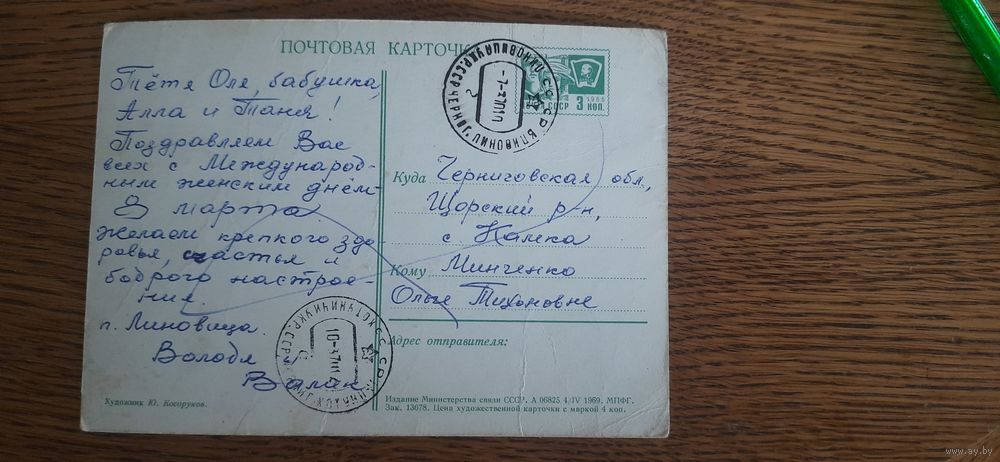 ПОЧТОВАЯ КАРТОЧ
Тётя Оля, бабушка,
Алла и Таня!
Поздравляем Вас
всех с Международ-
ным женским днём-
8 марта
желаем крепкого здо-
ровья, счастья и
бодрого настрое-
ния.
п. Линовица.
Володя и
Художник Ю. Косоруков.
1966
СССР 3 КОП.
Куда Черниговская обл.,
Щорский р-н,
с Камка
Кому Минченко
Ольге Тихоновне
Адрес отправителя:
Издание Министерства связи СССР. А 06825 4/IV 1969. МПФГ.
Зак. 13078. Цена художественной карточки с маркой 4 коп.
www.ay.by